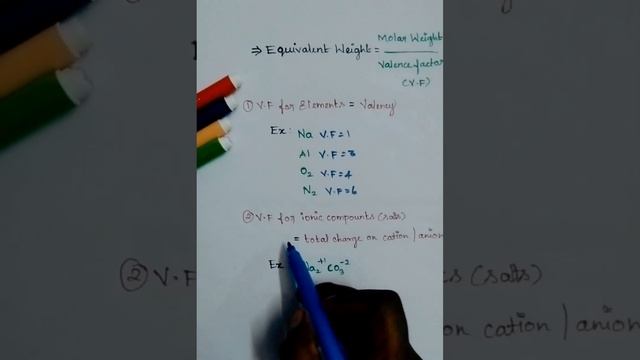 ⇒ Equivalent Weight = Molar Weight
Valence factor
(V.F)
① V.F for Elements = Valency
Ex: Na V.F=1
Al V.F=3
O₂ V.F=4
N₂ V.F=6
② V.F for ionic compounts (salts)
= total charge on cation / anion
Ex: Na₂⁺¹ CO₃⁻²
② V.F
(salts)
on cation / anion